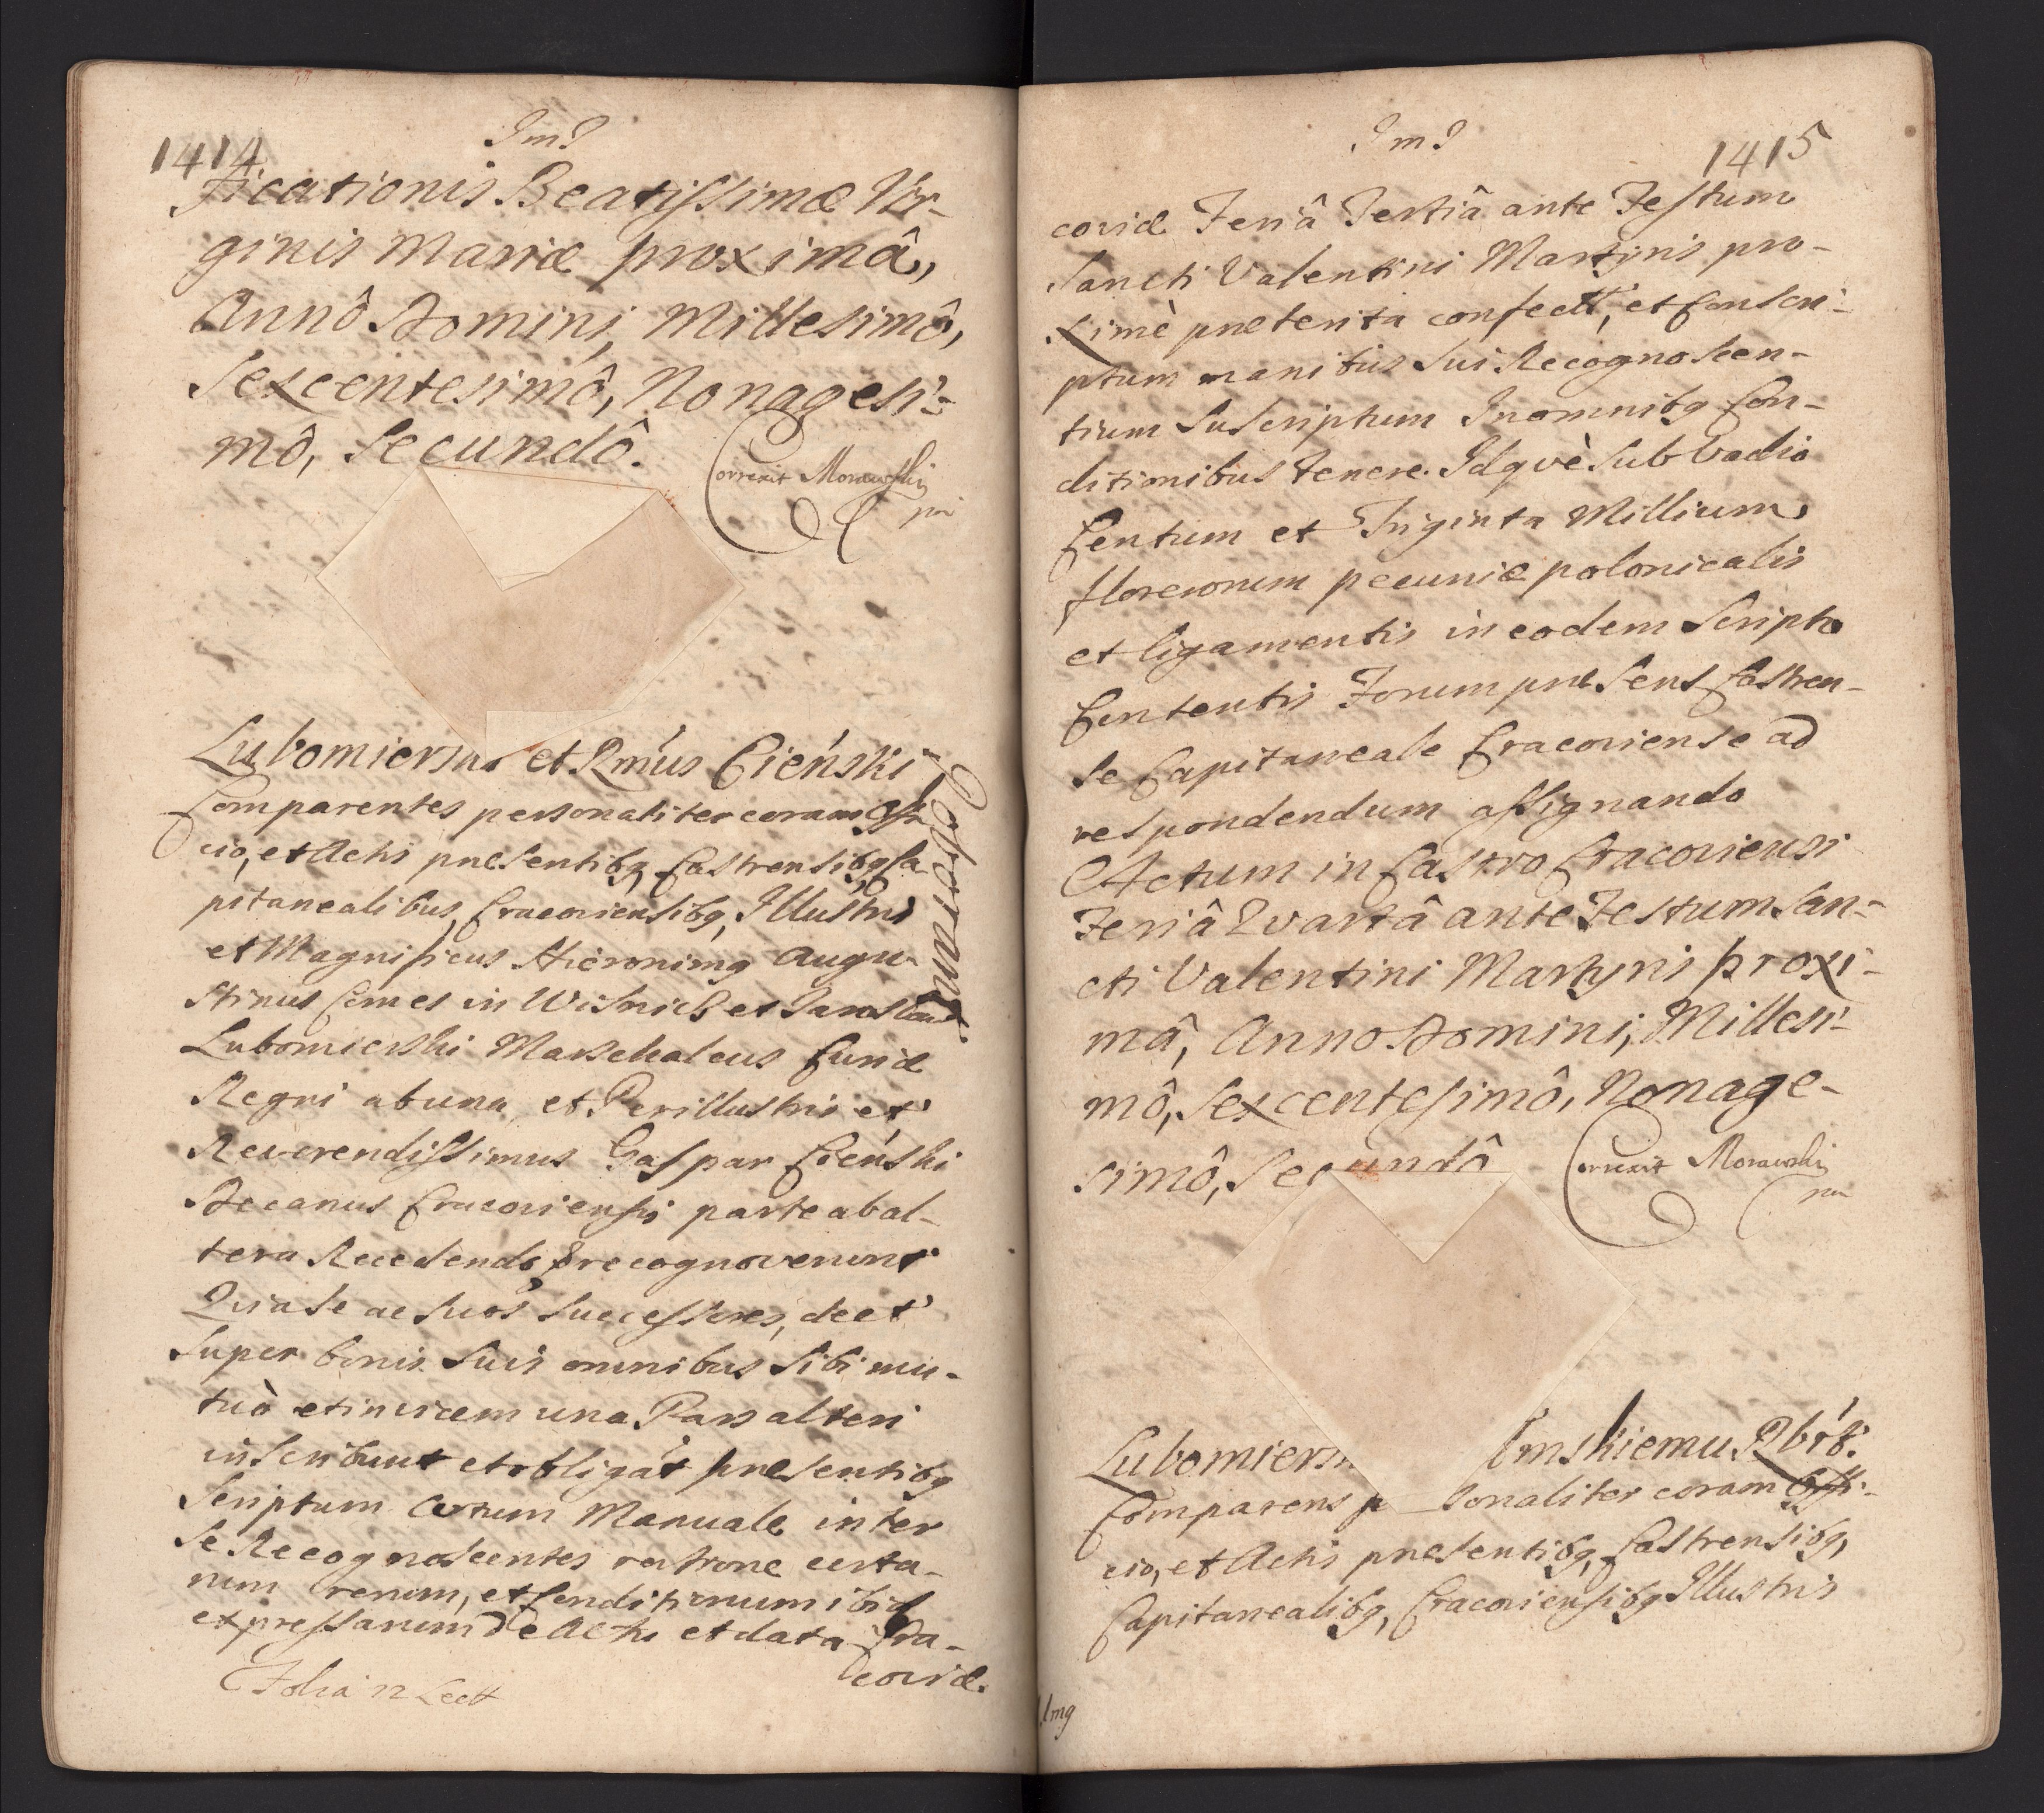 1414
ficationis Beatissimæ Vir-
ginis Mariæ proximâ,
Annô Domini, Millesimô,
Sexcentesimô, Nonagesi-
mô, Secundô.
Correxit Morawski
mp
Lubomierski et Rmus Cieński
Comparentes personaliter coram Offi
cio, et Actis præsentibq Castrensibq Ca-
pitanealibus, Cracoviensibq, Illustris
et Magnificus Hieronimq Augu-
stinus Comes in Wisnicz et Jaroslaw
Lubomierski Marschalcus Curiæ
Regni ab una, et Perillustris et
Reverendissimus Gaspar Cieński
Decanus Cracoviensis parte ab al-
tera Recedendo recognoverunt
Quia se ac suos successores, de et
super bonis suis omnibus sibi mu-
tuò et invicem una Pars alteri
inscribunt et obligat præsentibq
Scriptum certum Manuale inter
se Recognoscentes ratione certa-
rum rerum, et Conditionum ibid
expressarum De Actu et data Cra-
coviæ
Folia 12 Lect
1415
coviæ Feriâ Tertiâ ante Festum
Sancti Valentini Martyris pro-
ximè præterita confectt, et Conscri-
ptum manibus sui Recognoscen-
tium Suscriptum In omnibq Con-
ditionibus tenere. Idqvè sub vadio
Centum et Triginta Millium
florenorum pecuniæ polonicalis
et ligamentis in eodem Scripto
Contentis Forum præsens Castren-
se Capitaneale Cracoviense ad
respondendum assignando
Actum in Castro Cracoviensi
Feriâ Qvartâ ante Festum San-
cti Valentini Martyris proxi-
mâ, Anno Domini, Millesi-
mô, Sexcentesimô, Nonage-
simô, Secundô
Correxit Morawski
mp
Lubomiers mskiemu
Comparens p sonaliter coram Offi-
cio, et Actis præsentibq, Castrensibq,
Capitanealibq, Cracoviensibq Illustris